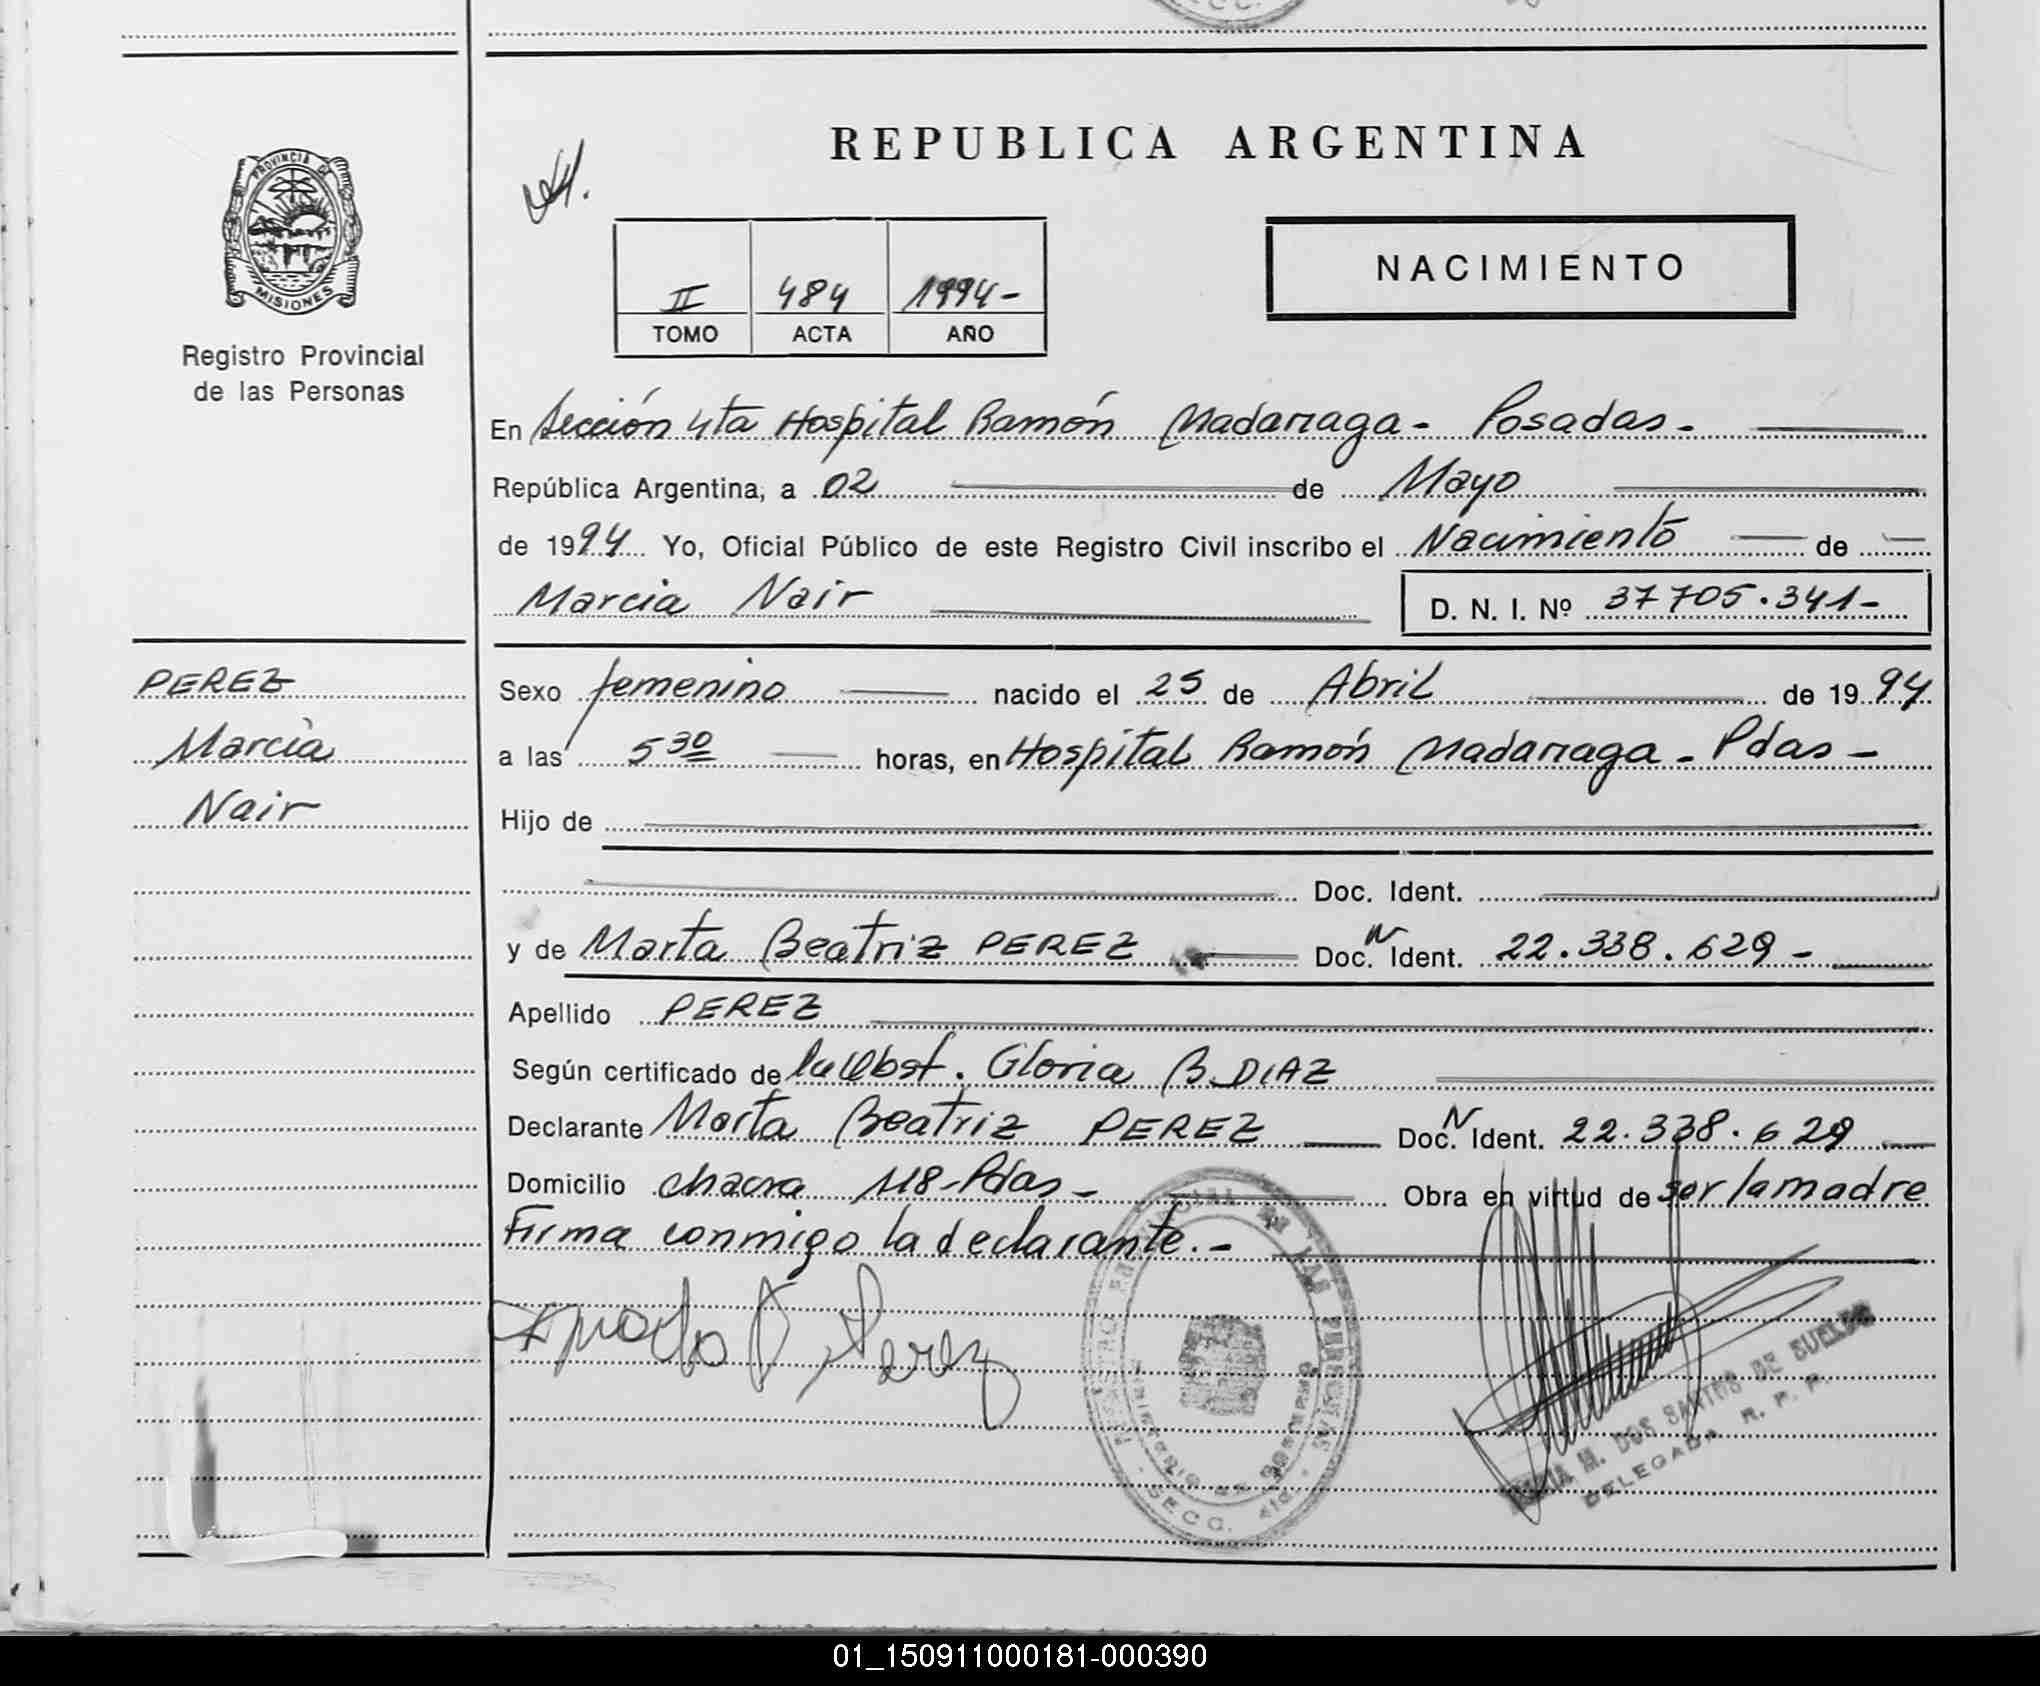 PROVINCIA DE
MISIONES
Registro Provincial
de las Personas
REPUBLICA ARGENTINA
II 484 1994-
TOMO ACTA AÑO
NACIMIENTO
En Sección 4ta Hospital Ramón Madariaga - Posadas -
República Argentina, a 02 de Mayo
de 1994 Yo, Oficial Público de este Registro Civil inscribo el Nacimiento de
Marcia Nair D. N. I. Nº 37705.341-
PEREZ
Marcia
Nair
Sexo femenino nacido el 25 de Abril de 1994
a las 5 30 horas, en Hospital Ramón Madariaga - Pdas -
Hijo de
Doc. Ident.
y de Marta Beatriz PEREZ Doc. N Ident. 22.338.629 -
Apellido PEREZ
Según certificado de la Obst. Gloria B. DIAZ
Declarante Marta Beatriz PEREZ Doc. N Ident. 22.338.629
Domicilio chacra 118 - Pdas - Obra en virtud de ser la madre
Firma conmigo la declarante. -
Perez
SECC. 4ta.
M. DOS SANTOS DE BUELDE
DELEGADA R. P. P.
01_150911000181-000390